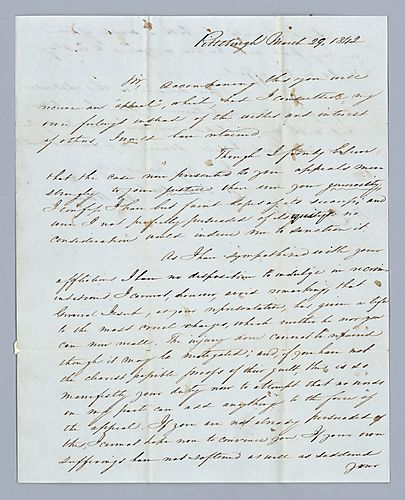 Pittsburgh March 29, 1842
accompanying this you will
receive an "appeal", which had I consulted my
own feelings instead of the wishes and interest
of others, I would have retained.
Though I firmly believe
that the case now presented to you appeals more
strongly to your justice than even your generosity,
I confess, I have but faint hopes of its success; and
were I not perfectly persuaded of its justice no
consideration would induce me to sanction it.
As I have sympathised with your
afflictions I have no disposition to indulge in recrim-
inations. I cannot, however, avoid remarking that
General as your representative, has given a life
to the most cruel charges which neither he nor you
can now recall. The injury done cannot be repaired
though it may be mitigated; and, if you have not
the clearest possible proofs of their guilt this is so
manifestly your duty now to attempt that no words
on my part can add anything to the force of
the appeal. If you are not already persuaded of
this, I cannot hope now to convince you. If your own
sufferings have not softened as well as saddened
your